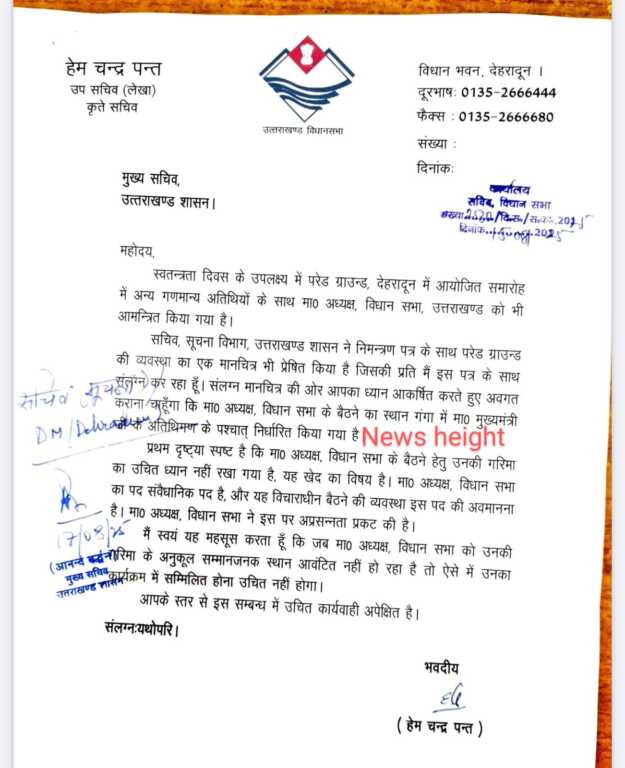 हेम चन्द्र पन्त
उप सचिव (लेखा)
कृते सचिव
उत्तराखण्ड विधानसभा
विधान भवन, देहरादून ।
दूरभाषः 0135-2666444
फैक्स : 0135-2666680
संख्या :
दिनांकः
मुख्य सचिव,
उत्तराखण्ड शासन।
कार्यालय
सचिव, विधान सभा
संख्या
दिनांक
महोदय,
स्वतन्त्रता दिवस के उपलक्ष्य में परेड ग्राउन्ड, देहरादून में आयोजित समारोह
में अन्य गणमान्य अतिथियों के साथ मा0 अध्यक्ष, विधान सभा, उत्तराखण्ड को भी
आमन्त्रित किया गया है।
सचिव, सूचना विभाग, उत्तराखण्ड शासन ने निमन्त्रण पत्र के साथ परेड ग्राउण्ड
की व्यवस्था का एक मानचित्र भी प्रेषित किया है जिसकी प्रति मैं इस पत्र के साथ
संलग्न कर रहा हूँ। संलग्न मानचित्र की ओर आपका ध्यान आकर्षित करते हुए अवगत
कराना चाहूँगा कि मा0 अध्यक्ष, विधान सभा के बैठने का स्थान गंगा में मा0 मुख्यमंत्री
के अतिथिमण के पश्चात् निर्धारित किया गया है
News height
प्रथम दृष्ट्या स्पष्ट है कि मा0 अध्यक्ष, विधान सभा के बैठने हेतु उनकी गरिमा
का उचित ध्यान नहीं रखा गया है, यह खेद का विषय है। मा0 अध्यक्ष, विधान सभा
का पद संवैधानिक पद है, और यह विचाराधीन बैठने की व्यवस्था इस पद की अवमानना
है। मा0 अध्यक्ष, विधान सभा ने इस पर अप्रसन्नता प्रकट की है।
मैं स्वयं यह महसूस करता हूँ कि जब मा0 अध्यक्ष, विधान सभा को उनकी
गरिमा के अनुकूल सम्मानजनक स्थान आवंटित नहीं हो रहा है तो ऐसे में उनका
कार्यक्रम में सम्मिलित होना उचित नहीं होगा।
आपके स्तर से इस सम्बन्ध में उचित कार्यवाही अपेक्षित है।
संलग्नःयथोपरि।
सचिव सूचना
DM/Dehradun
17/08/25
(आनन्द बर्द्धन)
मुख्य सचिव
उत्तराखण्ड शासन
भवदीय
( हेम चन्द्र पन्त )